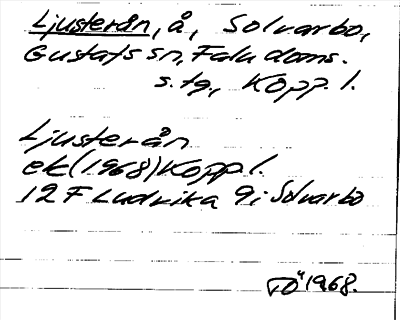 Ljusterån, å, Solvarbo,
Gustafs sn, Falu doms.
s.tg, Kopp. l.
Ljusterån
ek (1968) Kopp l.
12 F Ludvika 9i Solvarbo
1968.